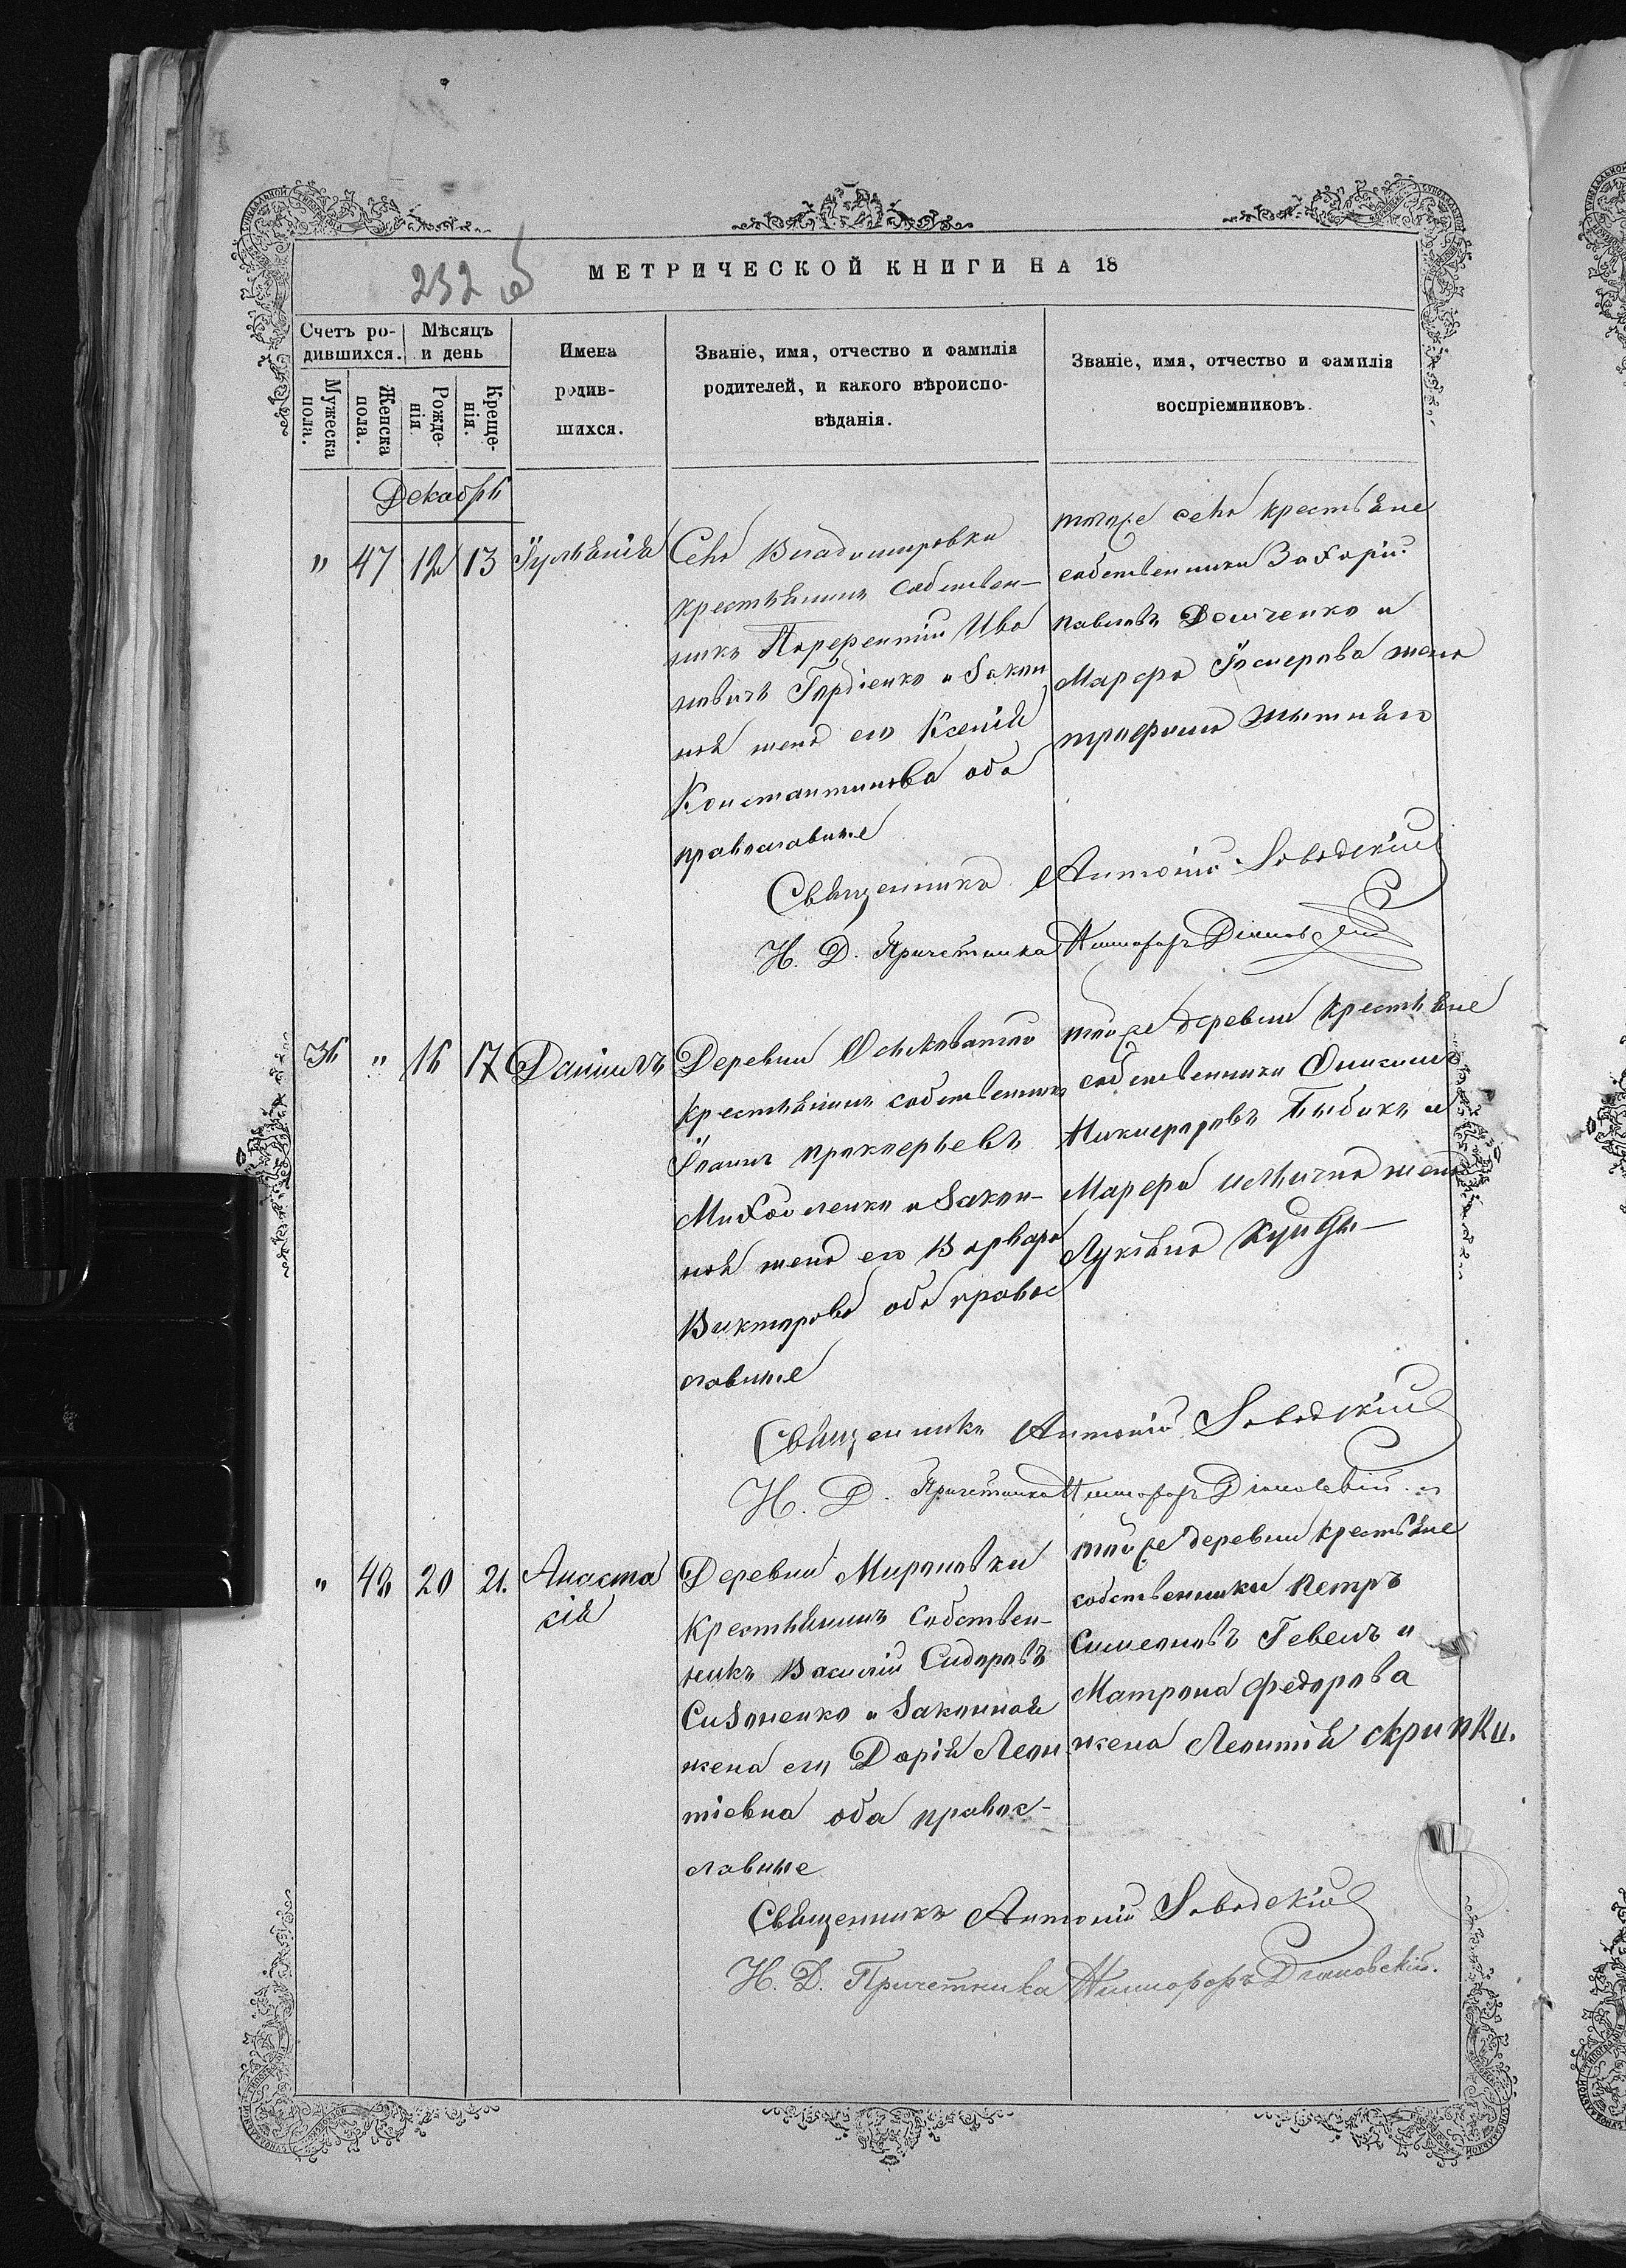 232 об
МЕТРИЧЕСКОЙ КНИГИ НА 18
Счетъ ро-
дившихся.
Мужеска
пола.
Женска
пола.
Мѣсяцъ
и день
Рожде-
нія.
Креще-
нія.
Имена
родив-
шихся.
Званіе, имя, отчество и фамилія
родителей, и какого вѣроиспо-
вѣданія.
Званіе, имя, отчество и фамилія
воспріемниковъ.
Декабрь
" 47 12 13 Іуліанія
Села Владимировки
крестьянинъ собствен-
никъ Терентій Ива
новичъ Гордіенко и закон
ноя жена его Ксенія
Константинова оба
православные
тогоже села крестьяне
собственники Захарій
Павловъ Демченко и
Марфа жена
Трофима
Священникъ Антоній Заводскій
И. Д. Причетника Никифоръ
" 16 17 Даніилъ
Деревни
крестьянинъ собственникъ
Іоаннъ Прокофьевъ
Михайленко и закон-
ноя жена его Варвара
Викторова оба правос
лавные
тойже деревни крестьяне
собственники Онисимъ
Никифоровъ и
Марфа жена
Лукіана
Священникъ Антоній Заводскій
И. Д. Причетника Никифоръ
" 48 20 21. Анаста
сія
Деревни Мироновки
крестьянинъ собствен-
никъ Василій Сидоровъ
Сизоненко и законноя
жена его Дарія Леон
тіевна оба правос-
лавные
тойже деревни крестьяне
собственники Петръ
Симеоновъ и
Матрона Федорова
жена Леонтія Скрипки.
Священникъ Антоній Заводскій
И. Д. Причетника Никифоръ